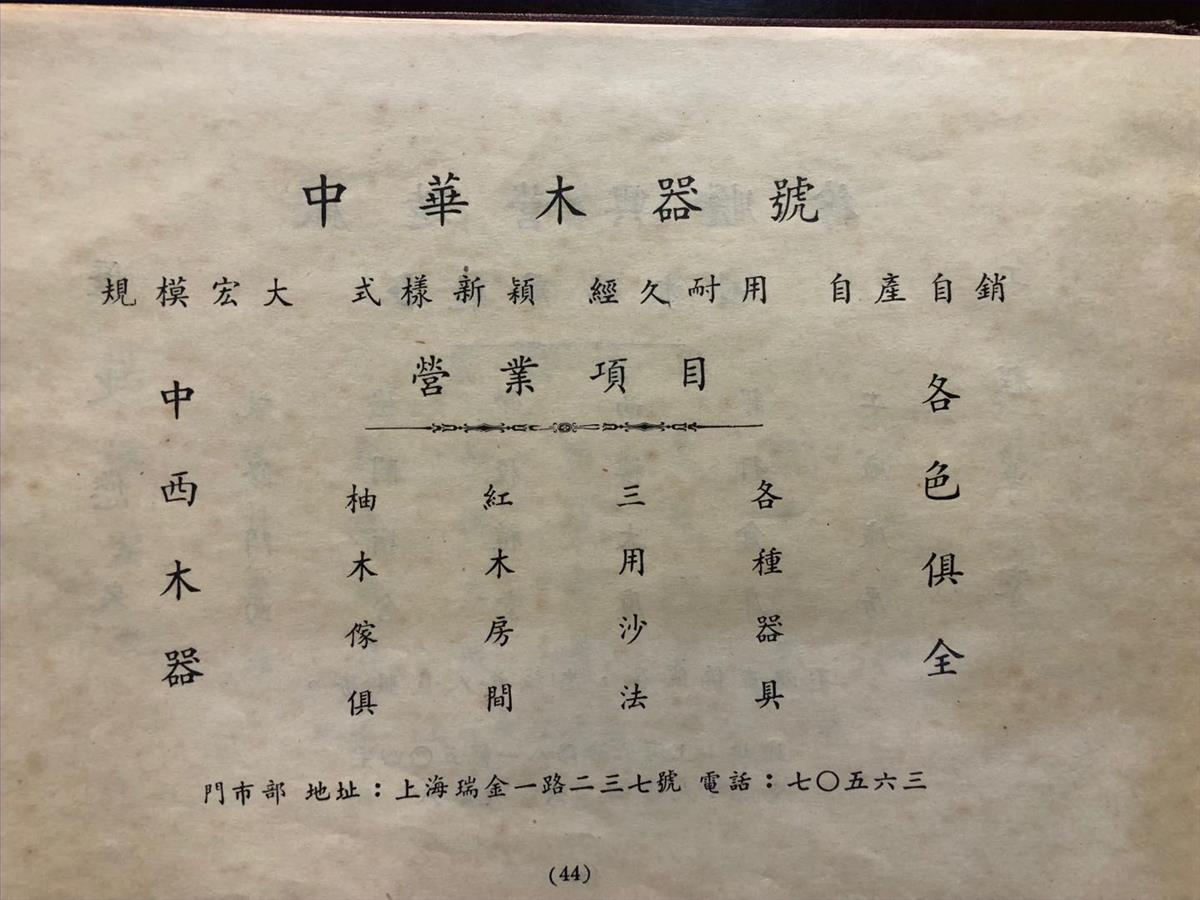 中華木器號
規模宏大 式樣新穎 經久耐用 自產自銷
營業項目
中西木器
柚木傢俱
紅木房間
三用沙法
各種器具
各色俱全
門市部 地址：上海瑞金一路二三七號 電話：七〇五六三
(44)